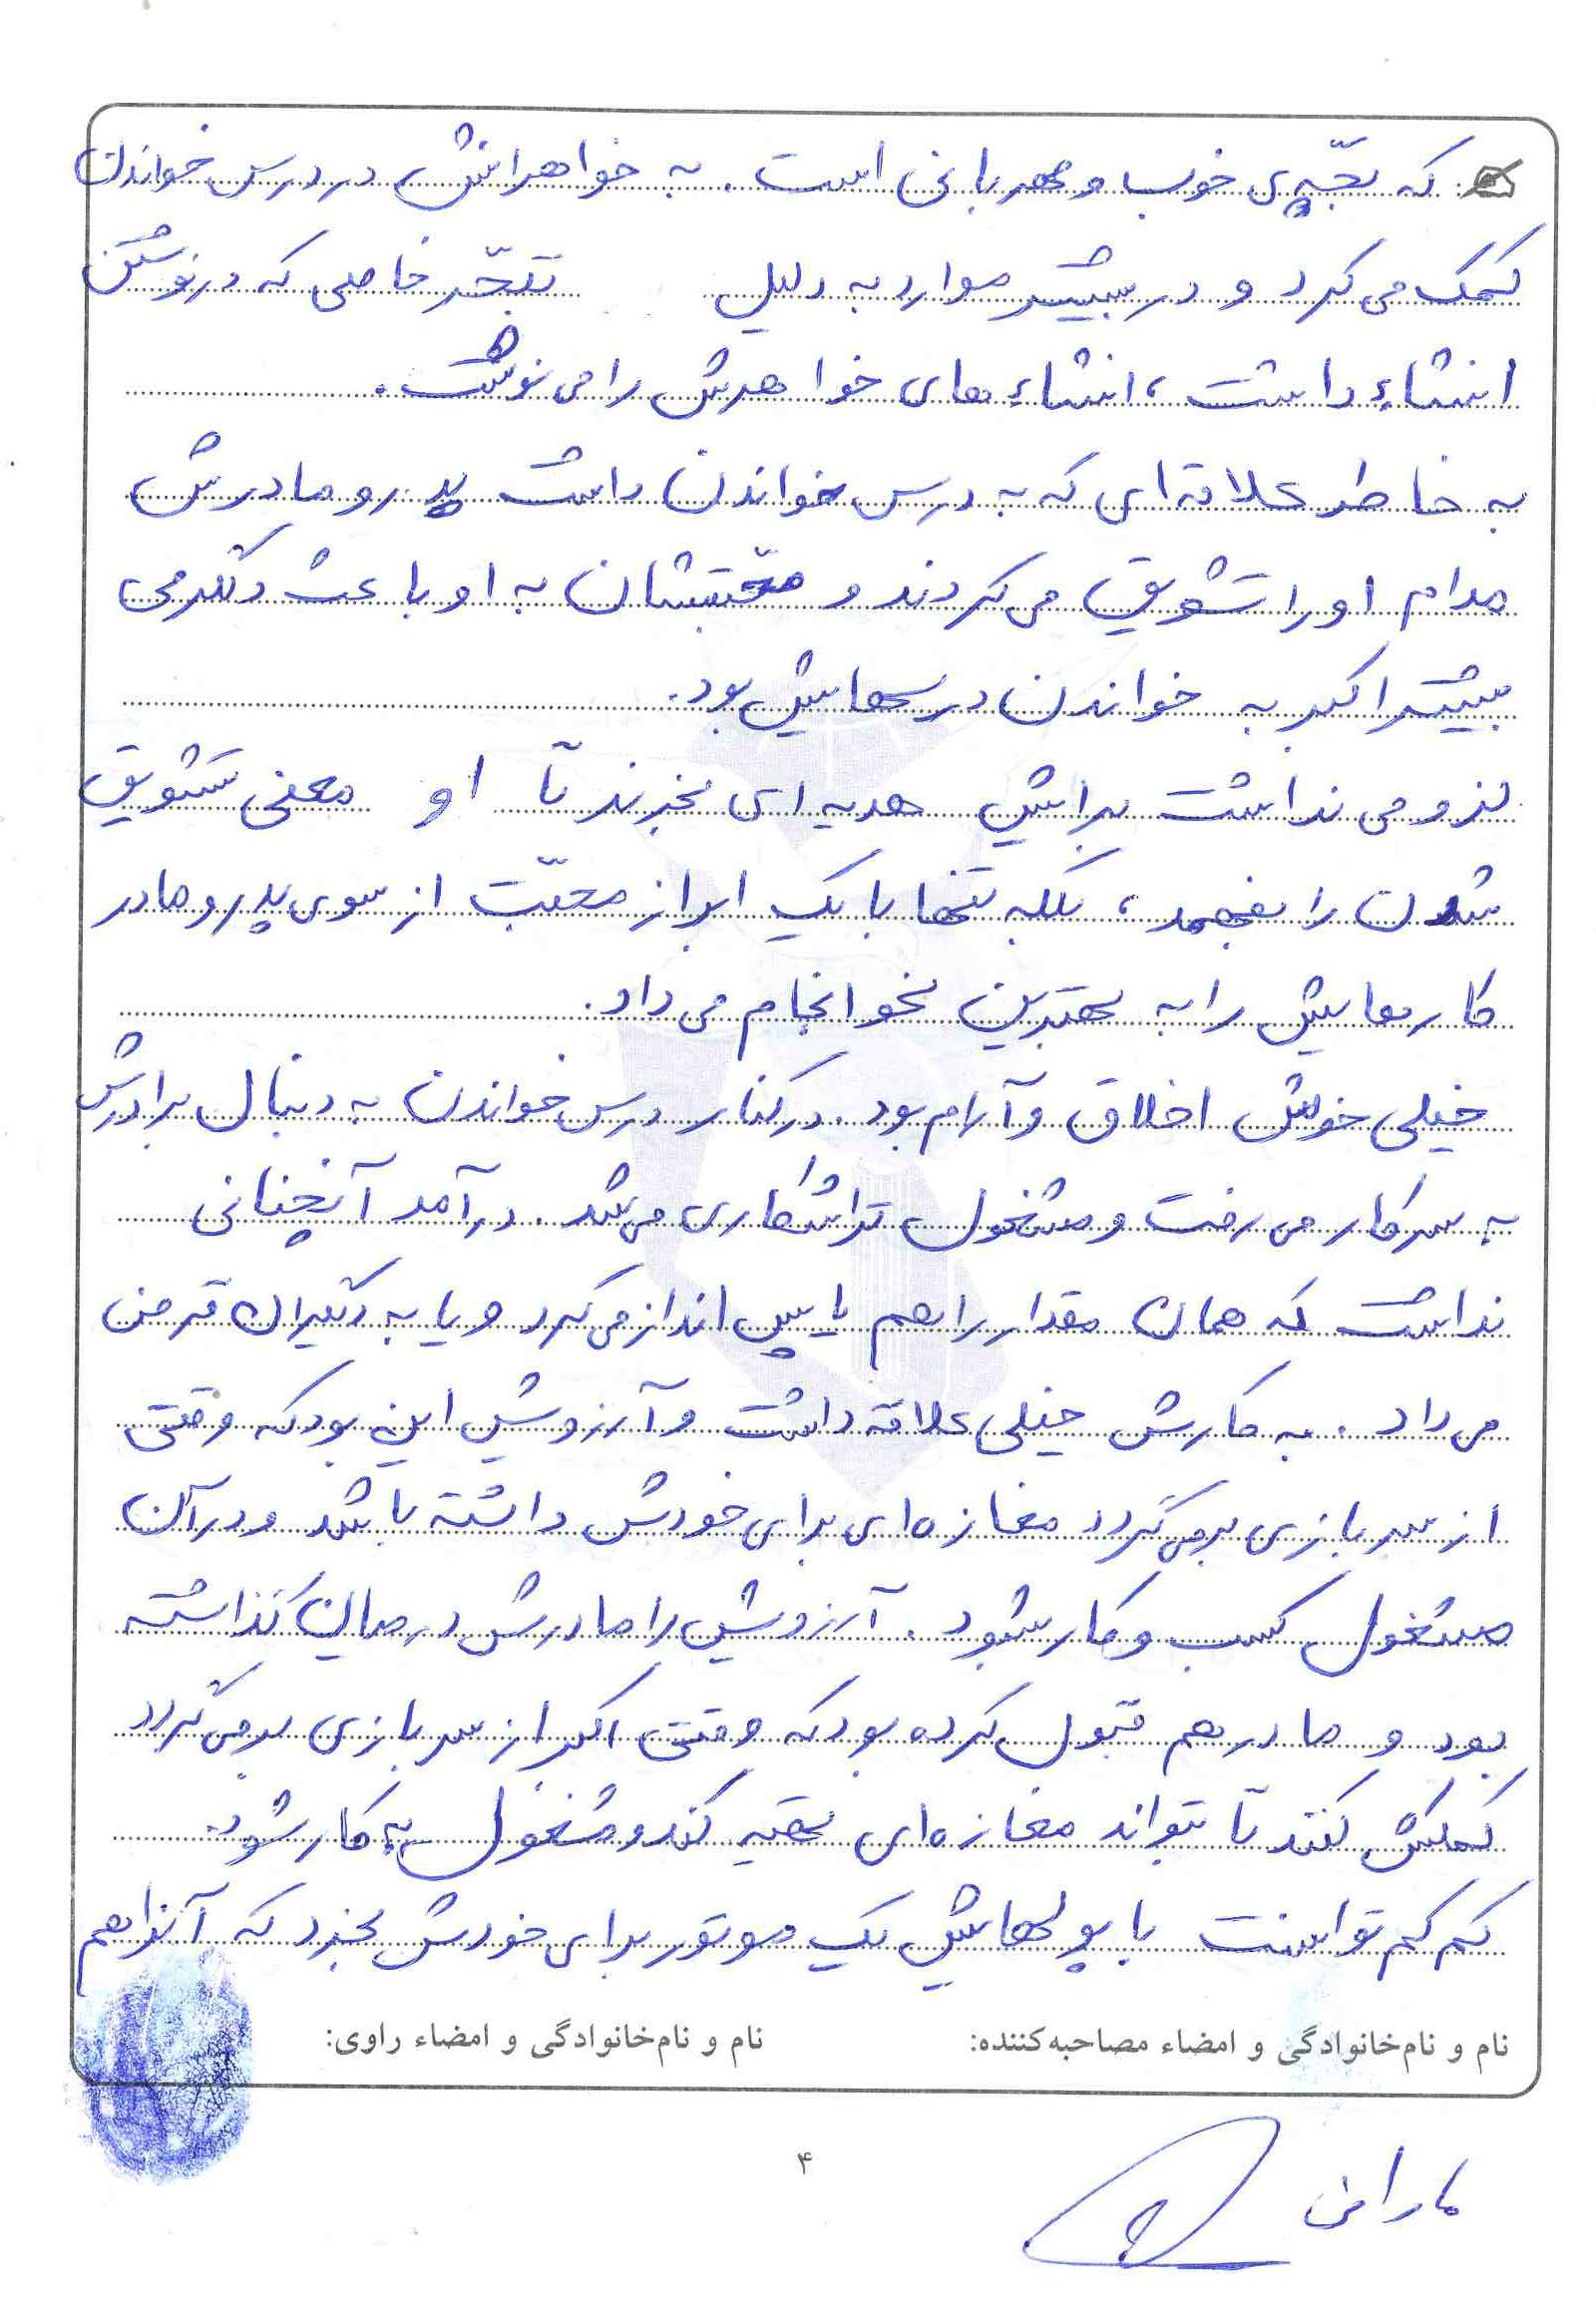 که بچّه‌ی خوب و مهربانی است. به خواهرانش در درس خواندن
کمک می‌کرد و در بیشتر موارد به دلیل تبحّر خاصی که در نوشتن
انشاء داشت، انشاءهای خواهرش را می‌نوشت.
به خاطر علاقه‌ای که به درس خواندن داشت پدر و مادرش
مدام او را تشویق می‌کردند و محبّتشان به او باعث دلگرمی
بیشتر اکبر به خواندن درسهایش بود.
لزومی نداشت برایش هدیه‌ای بخرند تا او معنی تشویق
شدن را بفهمد، بلکه تنها با یک ابراز محبّت از سوی پدر و مادر
کارهایش را به بهترین نحو انجام می‌داد.
خیلی خوش اخلاق و آرام بود. در کنار درس خواندن به دنبال برادرش
به سر کار می‌رفت و مشغول تراشکاری می‌شد. درآمد آنچنانی
نداشت که همان مقدار را هم یا پس انداز می‌کرد و یا به دیگران قرض
می‌داد. به کارش خیلی علاقه داشت و آرزویش این بود که وقتی
از سربازی برمی‌گردد مغازه‌ای برای خودش داشته باشد و در آن
مشغول کسب و کار شود. آرزویش را با مادرش در میان گذاشته
بود و مادر هم قبول کرده بود که وقتی اکبر از سربازی برمی‌گردد
کمکش کنند تا بتواند مغازه‌ای تهیه کند و مشغول به کار شود.
کم کم توانست با پولهایش یک موتور برای خودش بخرد که آنرا هم
نام و نام‌خانوادگی و امضاء مصاحبه‌کننده: نام و نام‌خانوادگی و امضاء راوی:
۴